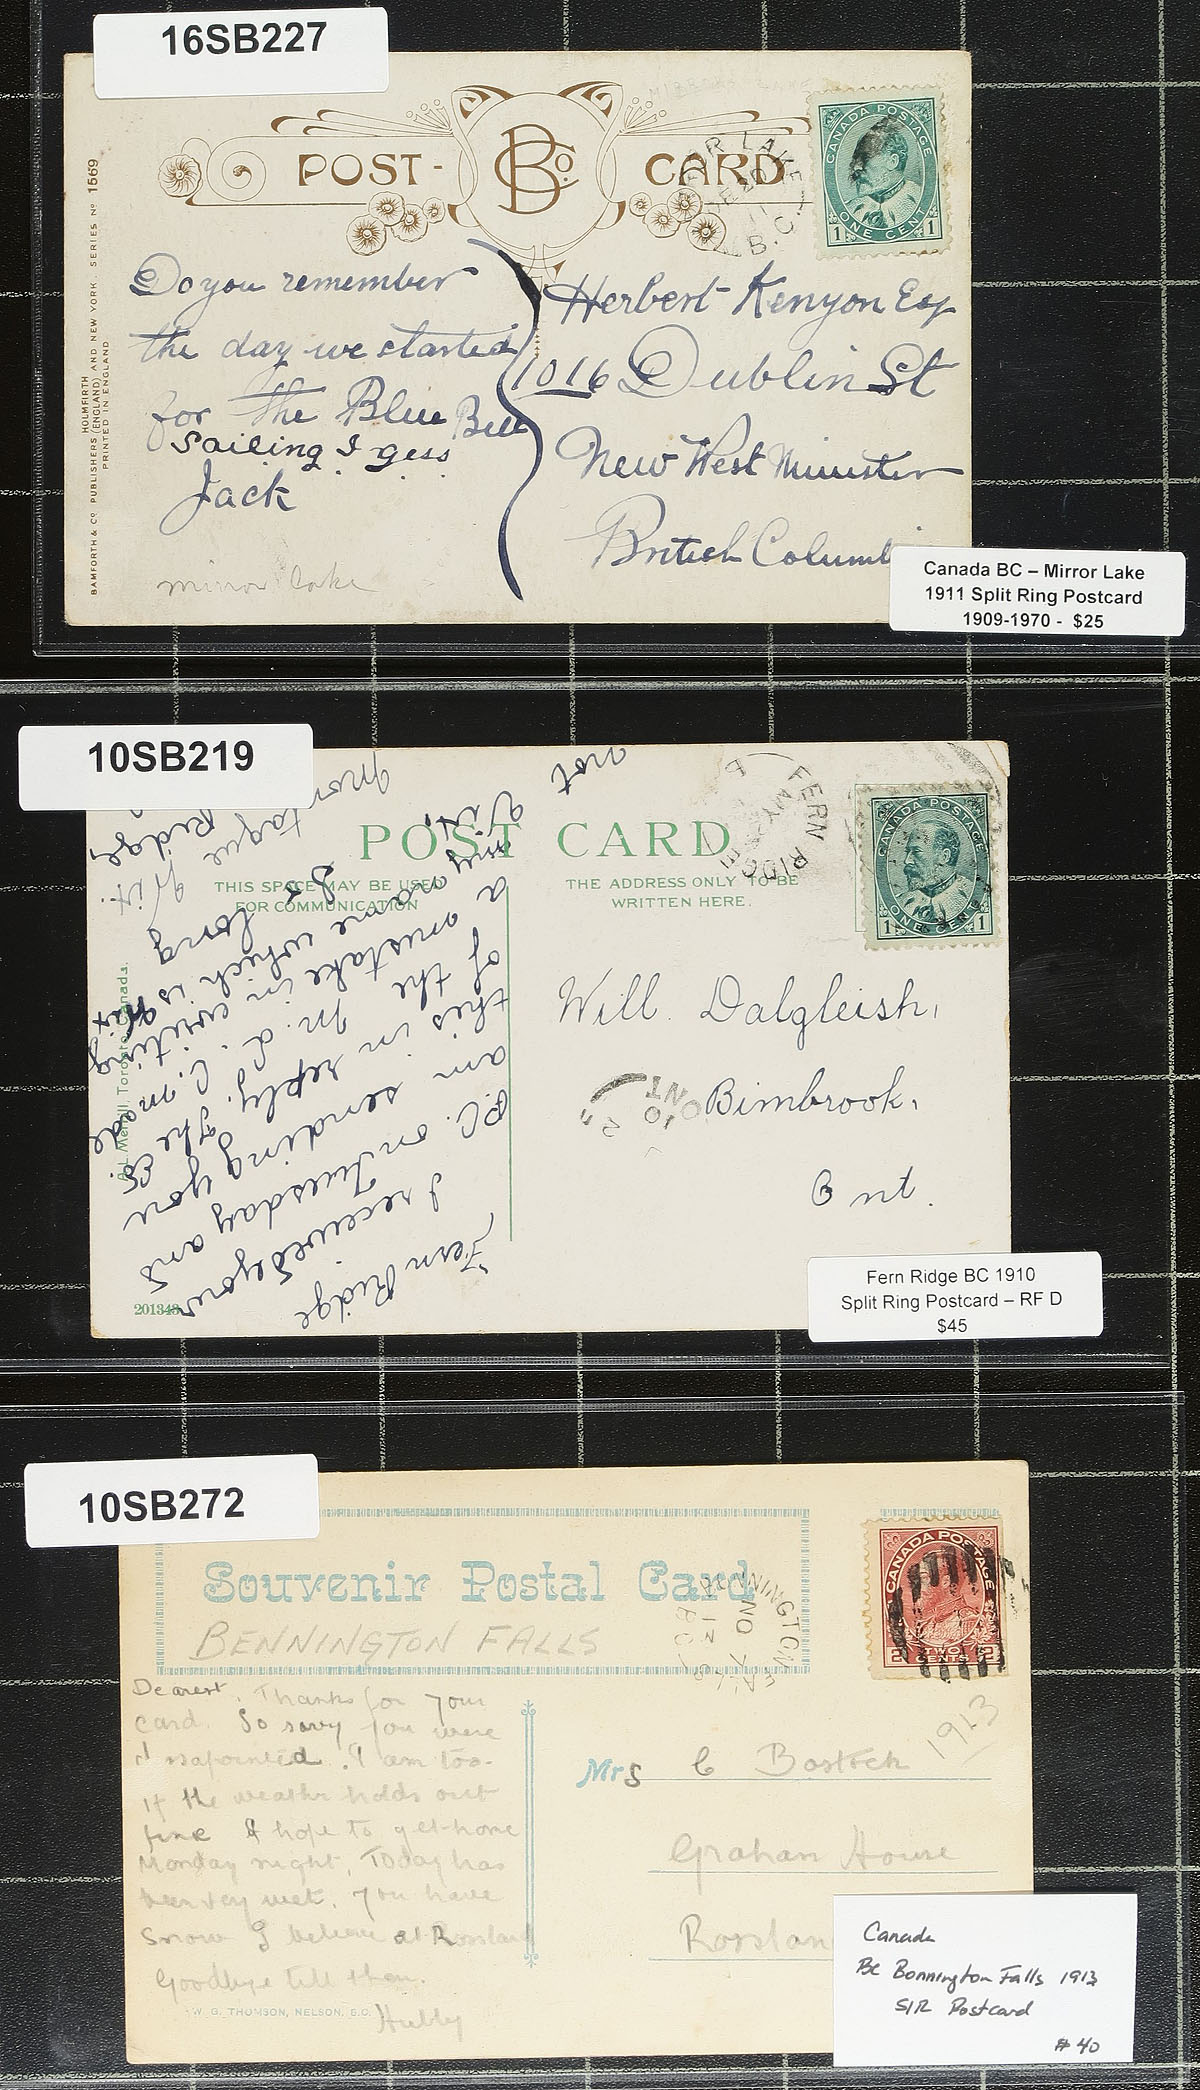 16SB227
POST-CARD
B Co.
MIRROR LAKE
CANADA POSTAGE
ONE CENT
1 1
LAKE
11
B.C.
Do you remember
the day we started
for the Blue Bell
Sailing I gess
Jack
mirror lake
Herbert Kenyon Esq
1016 Dublin St
New West Minister
British Columbi
BAMFORTH & CO. PUBLISHERS (ENGLAND) AND NEW YORK. SERIES No 1569
HOLMFIRTH
PRINTED IN ENGLAND
Canada BC – Mirror Lake
1911 Split Ring Postcard
1909-1970 - $25
10SB219
POST CARD
THIS SPACE MAY BE USED
FOR COMMUNICATION
THE ADDRESS ONLY TO BE
WRITTEN HERE.
FERN RIDGE
MY
CANADA POSTAGE
ONE CENT
1 1
Fern Ridge
I received your
P.C. on Tuesday and
am sending you
this in reply. The
of the M. L. C. made
a mistake in writing
my name which is
long
not
Montague
Ridge,
Will Dalgleish,
Bimbrook,
Ont.
ONT
10
201343
Toronto, Canada.
Fern Ridge BC 1910
Split Ring Postcard – RF D
$45
10SB272
Souvenir Postal Card
BENNINGTON FALLS
NO
13
BC
CANADA POSTAGE
TWO CENTS
2 2
1913
Dearest. Thanks for your
card. So sorry you were
dissapointed. I am too.
If the weathr holds out
fine I hope to get home
Monday night. Today has
been very wet. You have
snow I believe at Rossland
Goodbye till then.
Hubby
W. G. THOMSON, NELSON, B.C.
Mrs C Bostock
Graham House
Rosslan
Canada
BC Bonnington Falls 1913
S/R Postcard
# 40